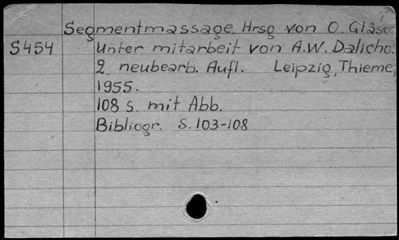 Segmentmassage. Hrsg von O. Gläser
S454 Unter mitarbeit von A.W. Dalicho.
2. neubearb. Aufl. Leipzig, Thieme,
1955.
108 s. mit Abb.
Bibliogr. S. 103-108